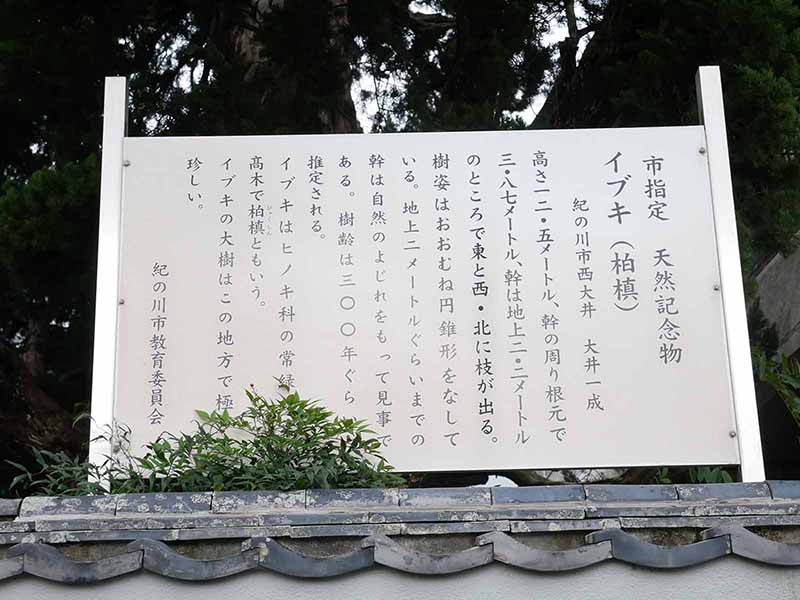 市指定　天然記念物
イブキ（柏槙）
紀の川市西大井　大井一成
高さ一二・五メートル、幹の周り根元で
三・八七メートル、幹は地上二・二メートル
のところで東と西・北に枝が出る。
樹姿はおおむね円錐形をなして
いる。地上二メートルぐらいまでの
幹は自然のよじれをもって見事で
ある。樹齢は三〇〇年ぐら
推定される。
イブキはヒノキ科の常緑
高木で柏槙ともいう。
びゃくしん
イブキの大樹はこの地方で極
珍しい。
紀の川市教育委員会